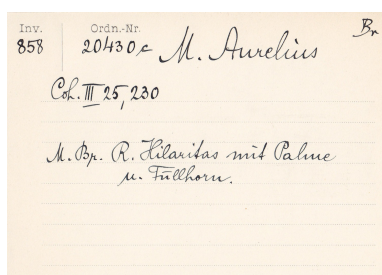 Inv. Ordn.-Nr. Br
858 20430c M. Aurelius
Coh. III 25, 230
M. Br. R. Hilaritas mit Palme
u. Füllhorn.